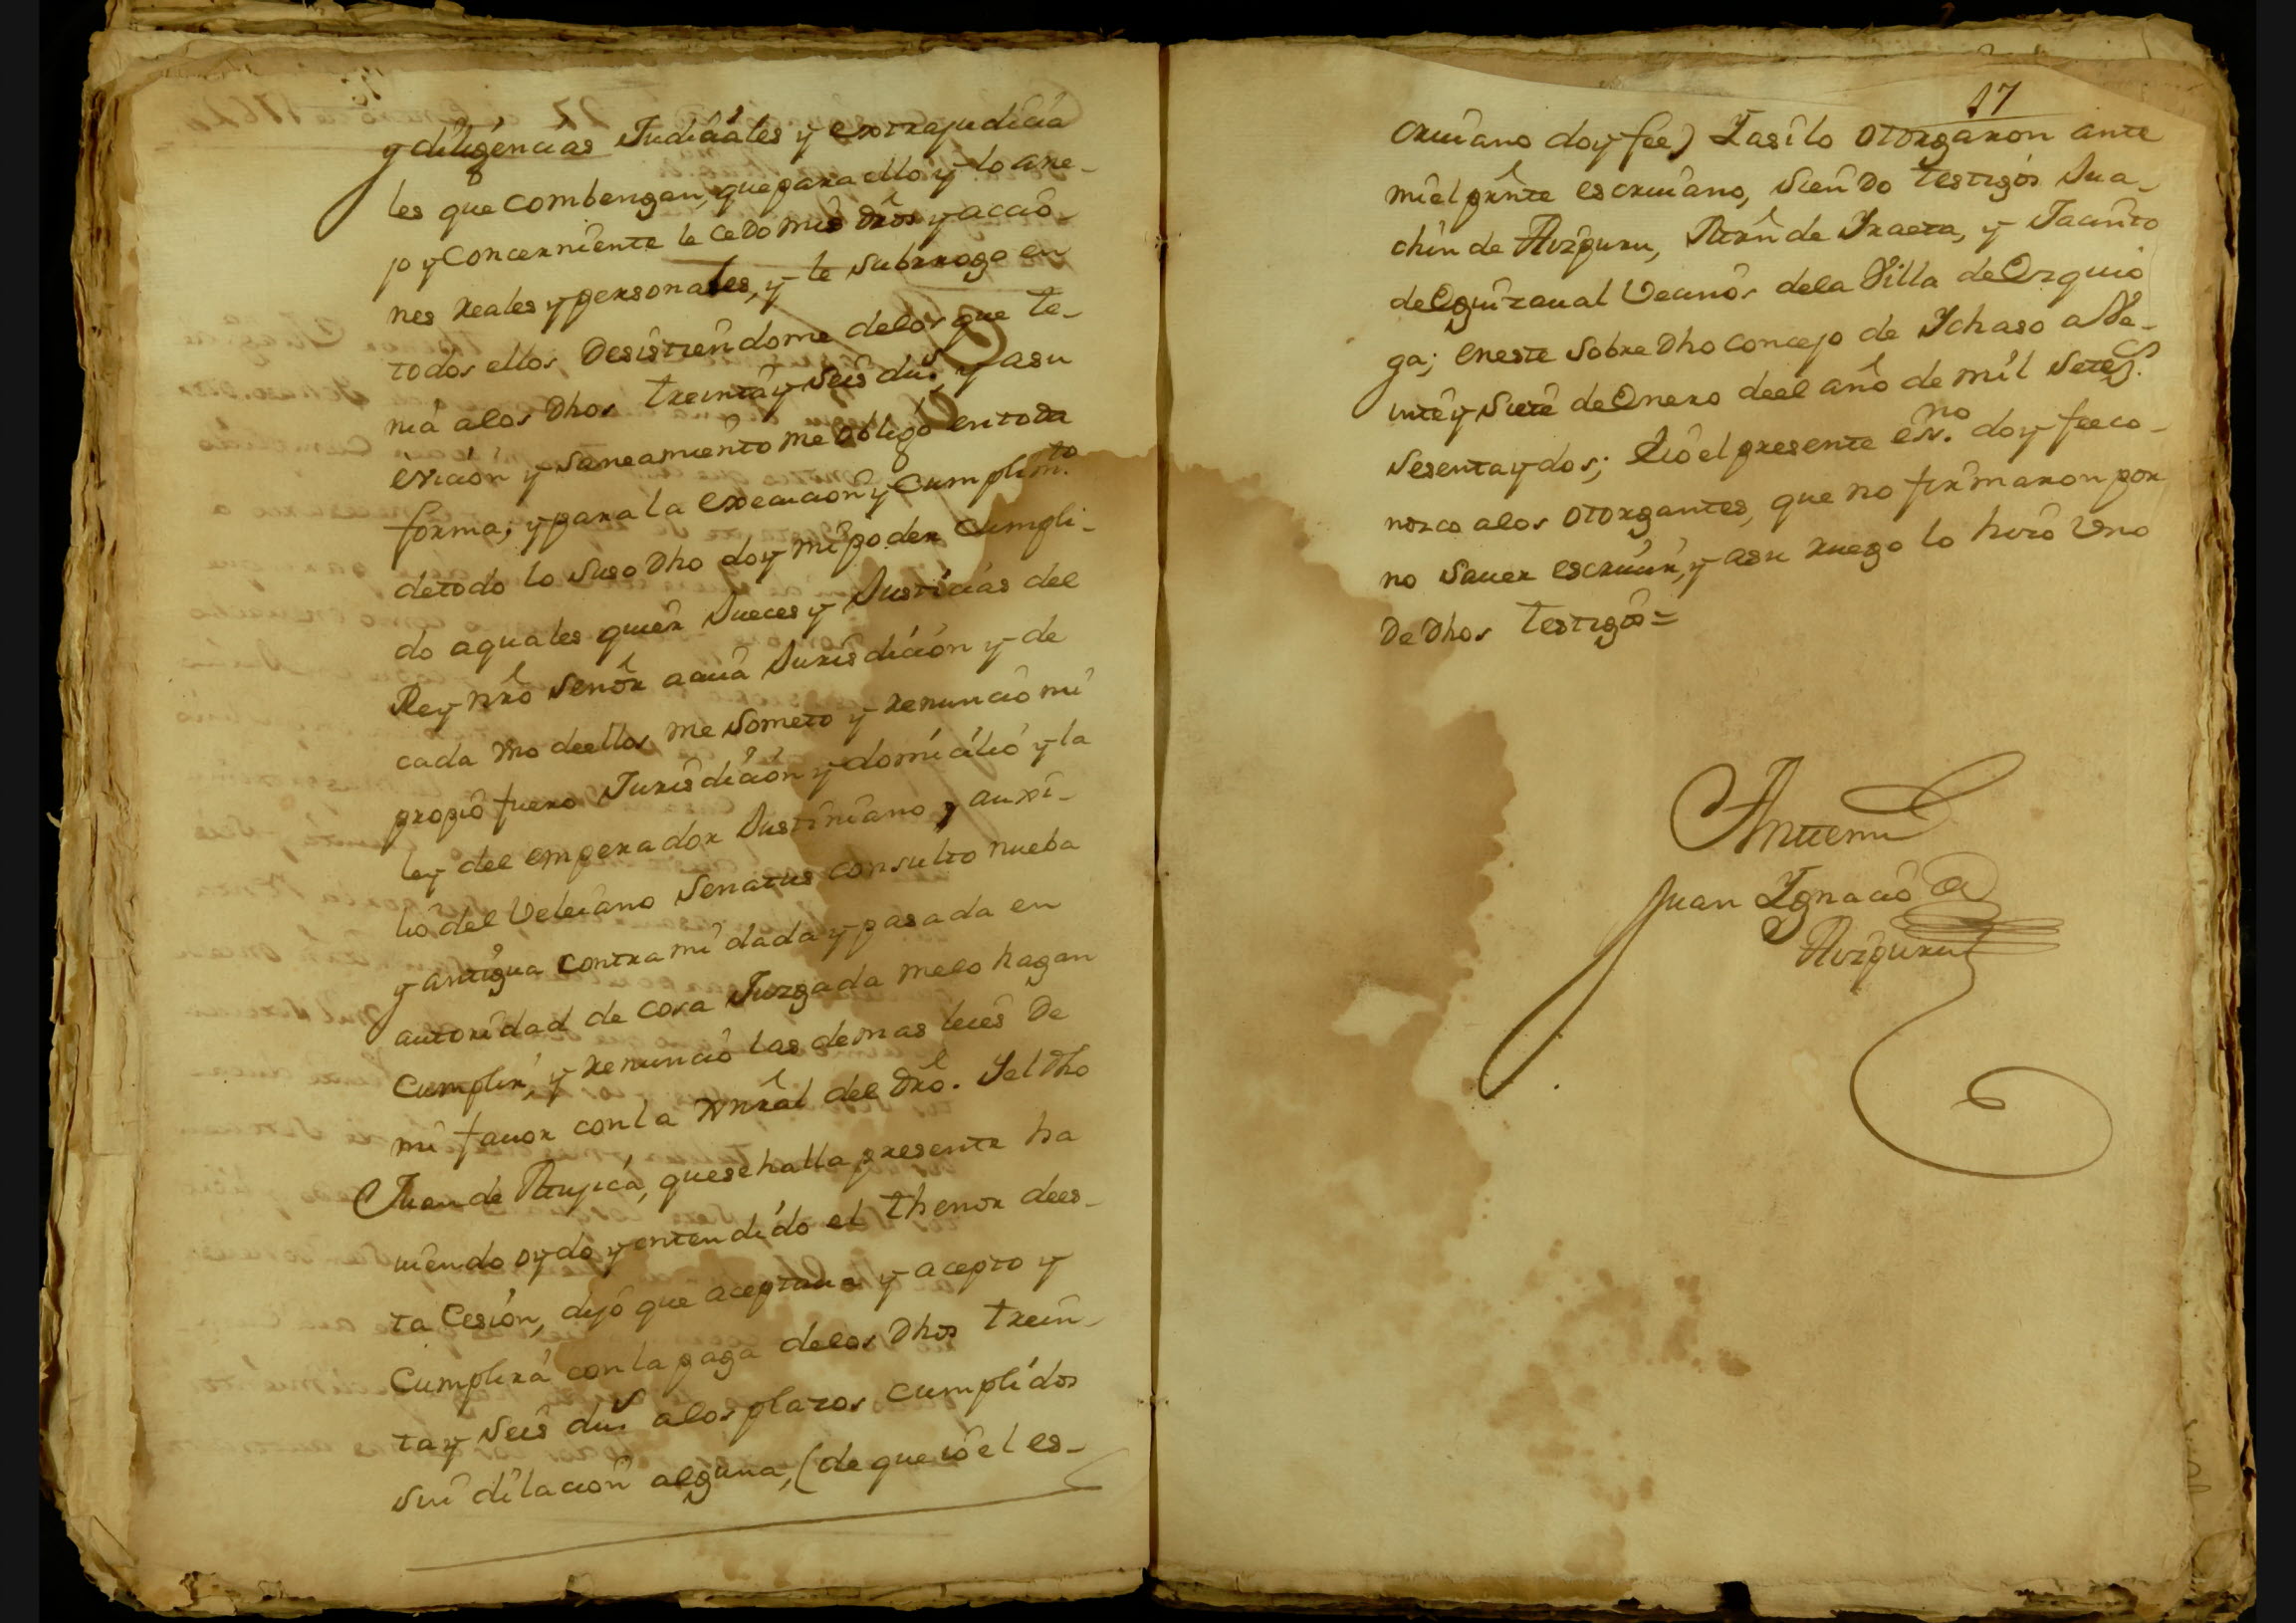 y diligencias Judiciales y extrajudicia
les que combengan, que para ello y lo ane-
jo y concerniente le cedo mis dros y accio-
nes reales y personales, y le subrrogo en
todos ellos desistiendome delos que te-
nia alos dhos treinta y seis dus. y asu
evicion y saneamiento me obligo en toda
forma; y para la execucion y cumplimto.
detodo lo suso dho doy mi poder cumpli-
do aquales quier Jueces y Justicias del
Rey nro señor acuia Jurisdicion y de
cada vno deellos me someto y renuncio mi
propio fuero Jurisdicion y domicilio y la
ley del emperador Justiniano, auxi-
lio del Veleiano Senatus consulto nueba
y antigua contra mi dada y pasada en
autoridad de cosa Juzgada melo hagan
cumplir, y renuncio las demas leies de
mi fauor con la gnral del dro. Y el dho
Juan de Aujica, que se halla presente ha
uiendo oydo y entendido el thenor dees-
ta Cesion, dijo que aceptaua y acepto y
Cumplira con la paga delos dhos trein-
ta y seis dus alos plazos cumplidos
sin dilacion alguna, (de que io el es-
17
criuano doy fee) Y asi lo otorgaron ante
mi el prnte escriuano, siendo testigos Jua-
chin de Aizpuru, de Yraeta, y Jacinto
de Eguizaual Vecinos dela Villa de Ezquio
ga; en este sobre dho concejo de Ychaso a Ve-
inte y siete de Enero deel año de mil setezs.
sesenta y dos; E io el presente esno. doy fee co-
nozco alos otorgantes, que no firmaron por
no sauer escriuir, y asu ruego lo hizo Vno
de dhos testigos =
Antemi
Juan Ygnacio de
Aizpuru